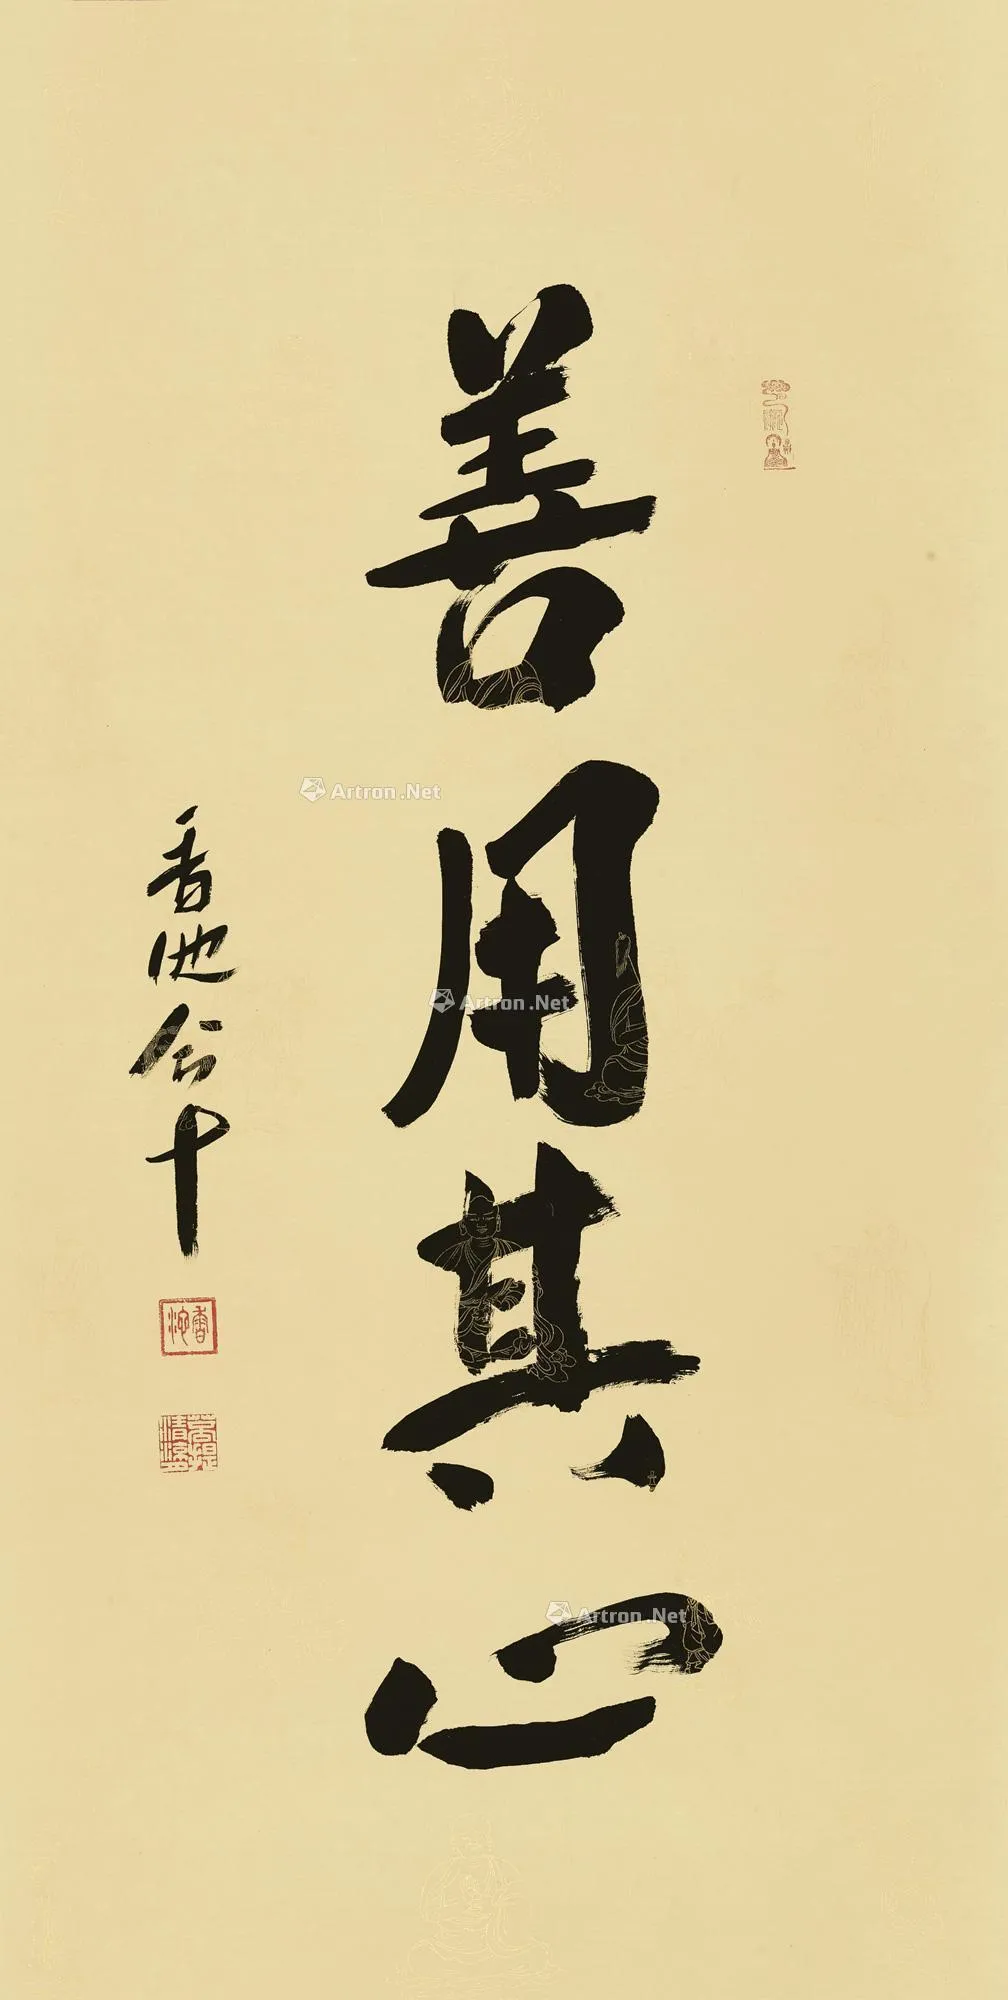 善用其心
香池合十
Artron.Net
Artron.Net
Artron.Net